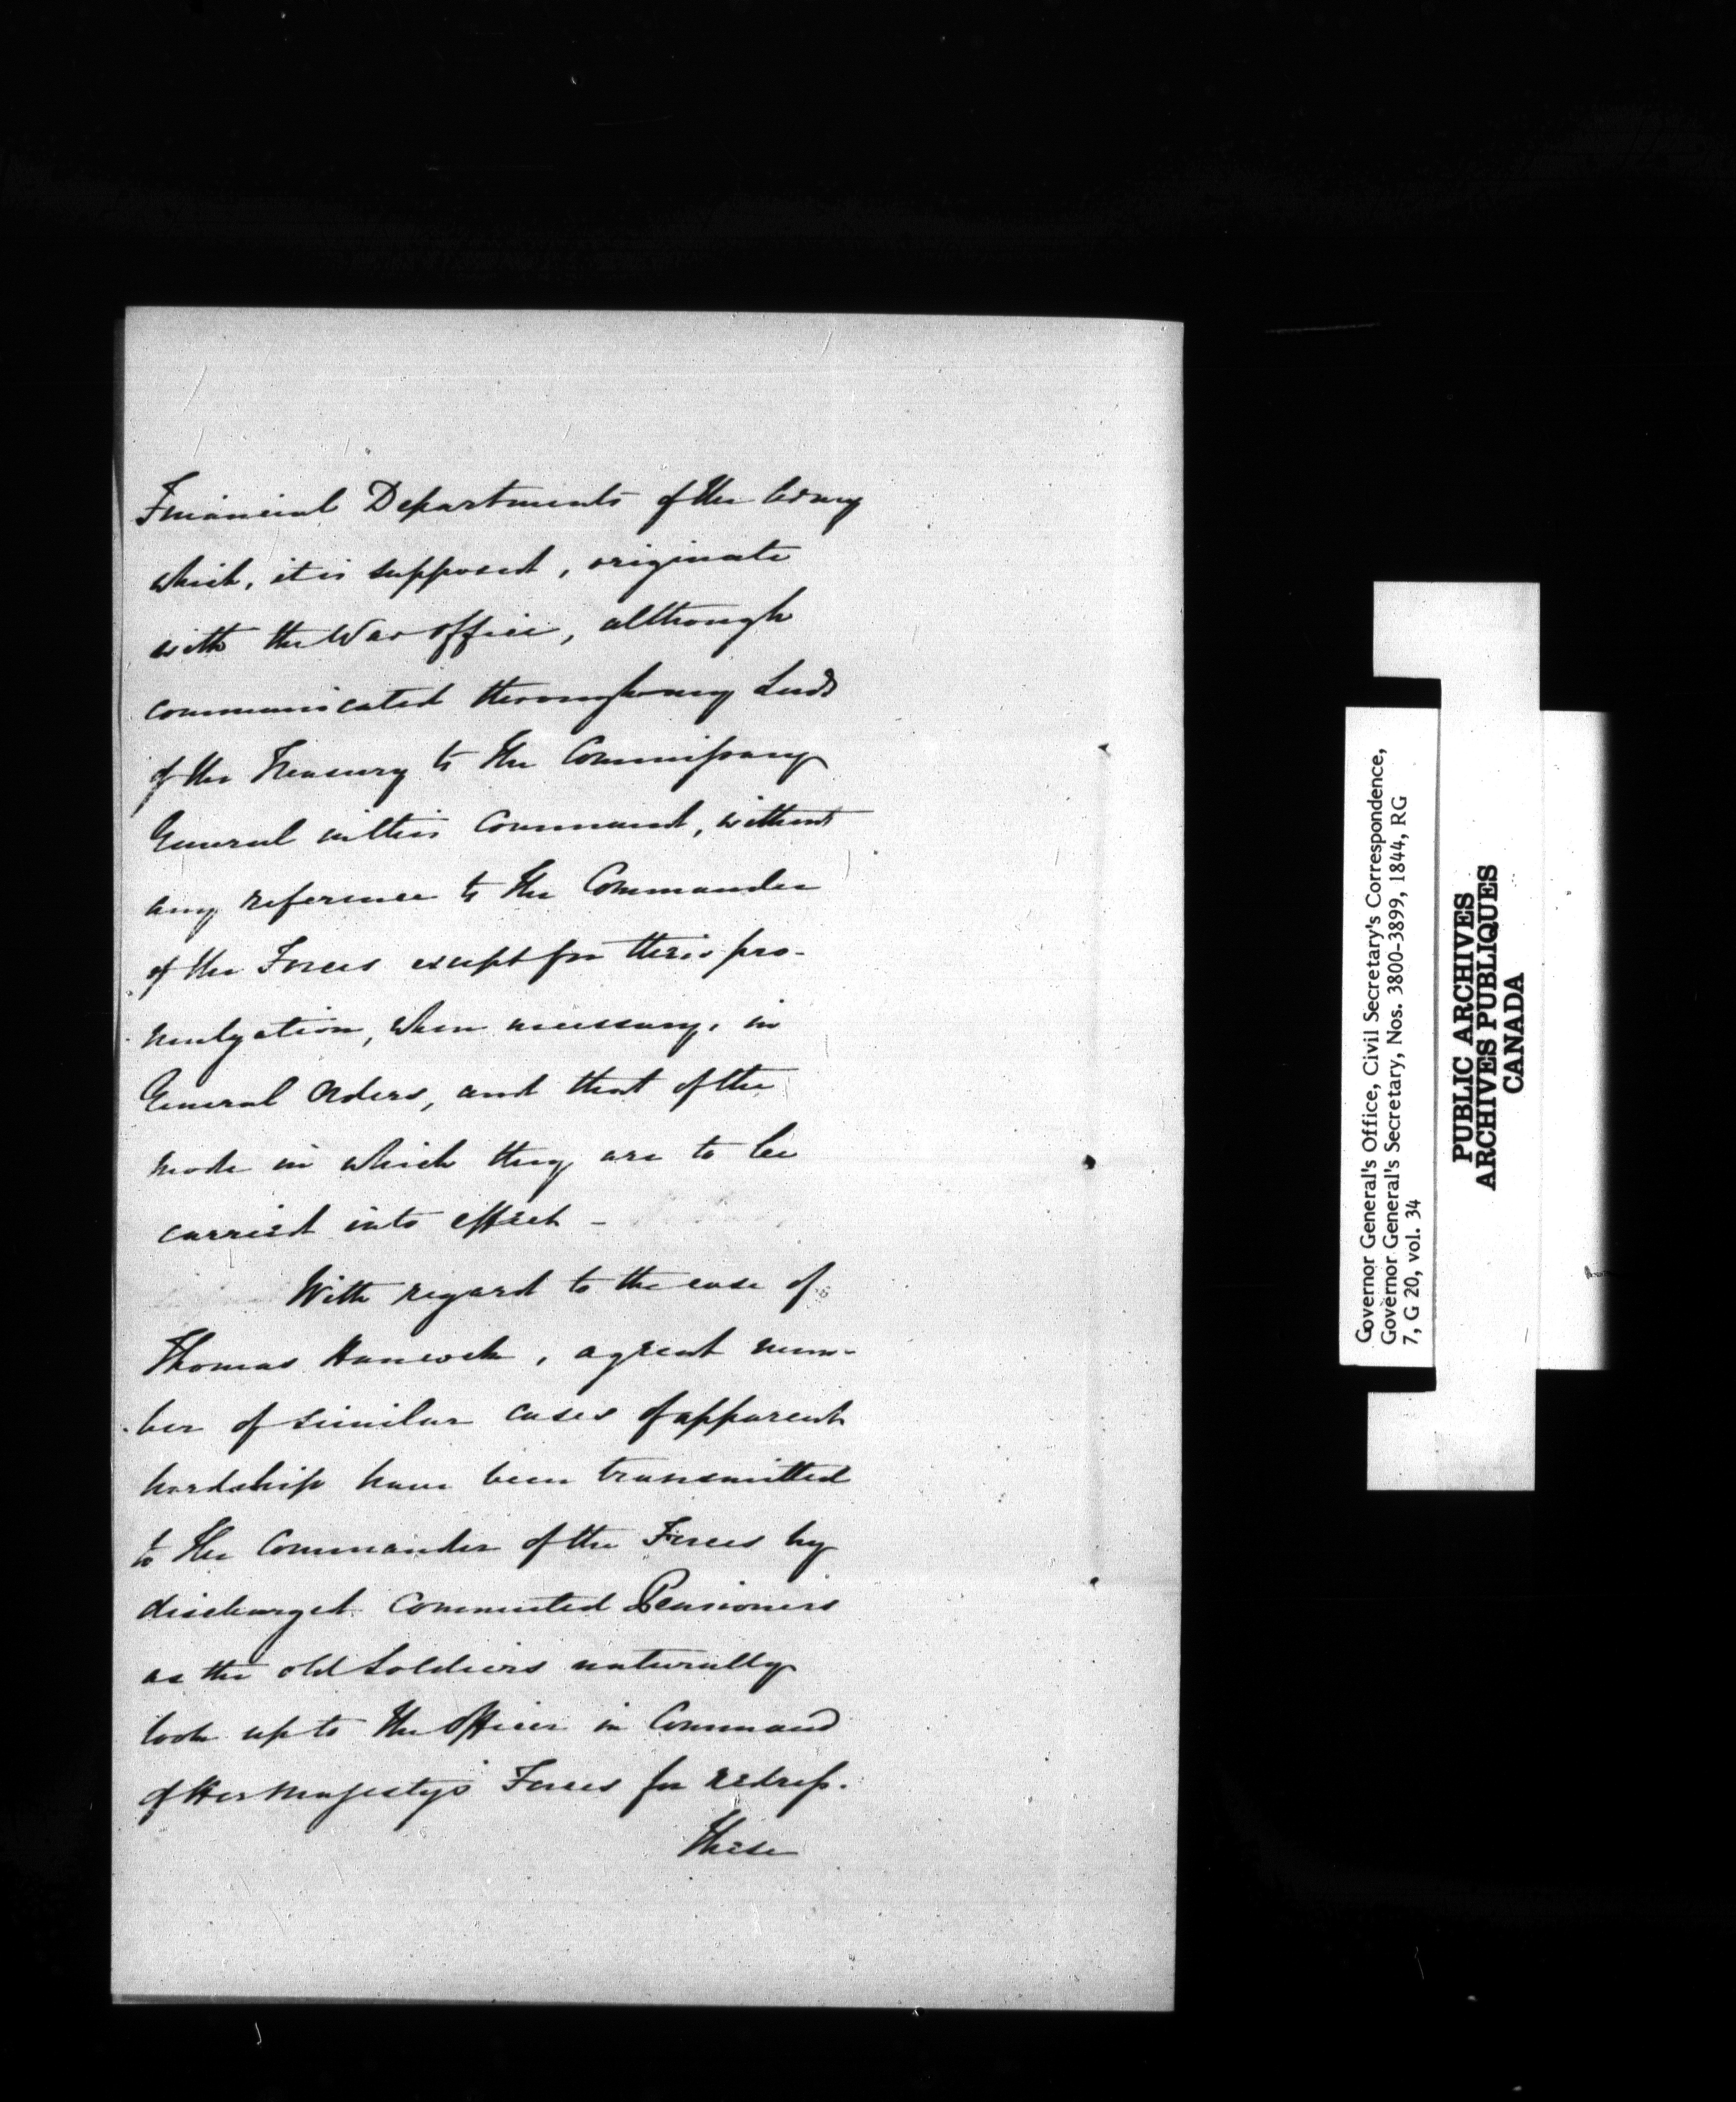 Financial Departments of the Army
which, it is supposed, originate
with the War Office, although
communicated through my Lords
of the Treasury to the Commissary
General in this Command, without
any reference to the Commander
of the Forces except for their pro-
mulgation, when necessary, in
General Orders, and that of the
mode in which they are to be
carried into effect -
With regard to the case of
Thomas Hancock, a great num-
ber of similar cases of apparent
hardship have been transmitted
to the Commander of the Forces by
discharged Commuted Pensioners
as the old Soldiers naturally
look up to the Officer in Command
of Her Majesty's Forces for redress.
These
Governor General's Office, Civil Secretary's Correspondence,
Governor General's Secretary, Nos. 3800-3899, 1844, RG
7, G 20, vol. 34
PUBLIC ARCHIVES
ARCHIVES PUBLIQUES
CANADA